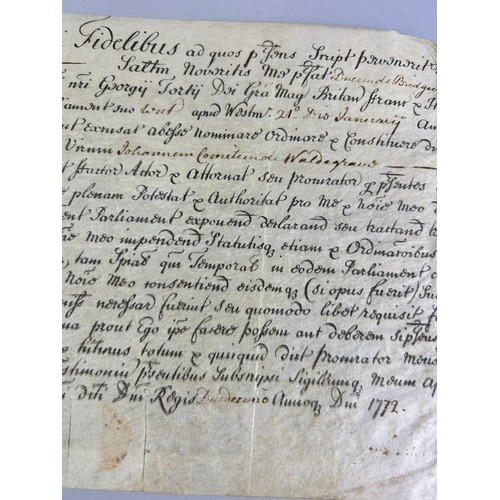 Fidelibus ad quos p͠sens Script pervenerit
Saltm Noveritis Me p͠fat Ducem de Bridge
n͠ri Georgij Tertij Dei Gra Mag Britan ffranc & H
liament suo tent apud Westm. 21o die Januarij
nt excusat abesse nominare Ordinare & Constituere
Virum Johannem Comitem de Waldegrave
t ffactor Actor & Attornat seu procurator p p͠sentes
plenam Potestat & Authoritat pro Me & No͠ie Meo
ent Parliament exponend declarand seu tractand
re Meo impendend Statutisq etiam & Ordinationibus
tam Sp͠ial qm Temporal in eodem Parliament
No͠ie Meo consentiend eisdemq (si opus fuerit)
necessar fuerint seu quomodo libet requisit
a prout Ego ip͠e facere possem aut deberem si p͠sens
habiturus totum & quicquid dict Procurator Meus
estimonium p͠sentibus Subscripsi Sigillumq Meum Ap
i dicti Dn͠i Regis Duodecimo Annoq Dn͠i 1772.